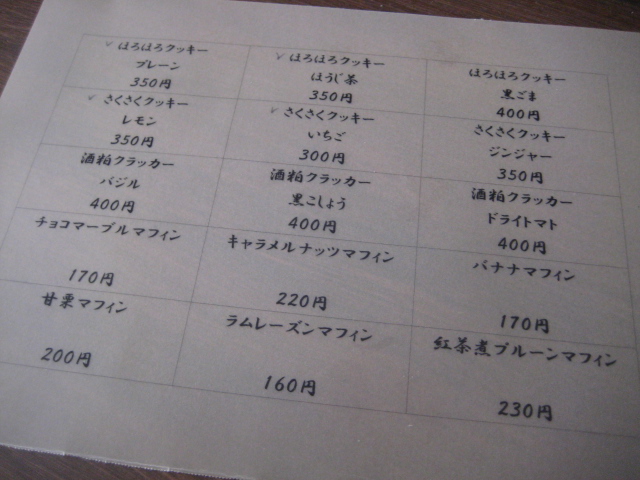 ほろほろクッキー
プレーン
350円
ほろほろクッキー
ほうじ茶
350円
ほろほろクッキー
黒ごま
400円
さくさくクッキー
レモン
350円
さくさくクッキー
いちご
300円
さくさくクッキー
ジンジャー
350円
酒粕クラッカー
バジル
400円
酒粕クラッカー
黒こしょう
400円
酒粕クラッカー
ドライトマト
400円
チョコマーブルマフィン
170円
キャラメルナッツマフィン
220円
バナナマフィン
170円
甘栗マフィン
200円
ラムレーズンマフィン
160円
紅茶煮プルーンマフィン
230円